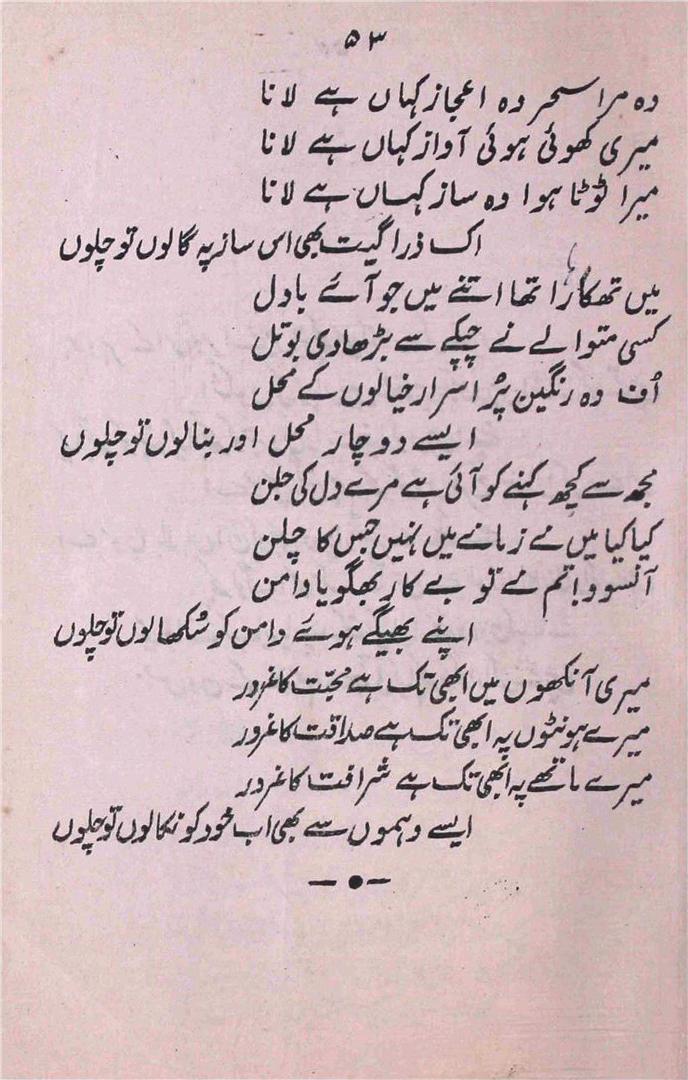 ۵۳
وہ مرا سحر وہ اعجاز کہاں ہے لانا
میری کھوئی ہوئی آواز کہاں ہے لانا
میرا ٹوٹا ہوا وہ ساز کہاں ہے لانا
اک ذرا گیت بھی اس ساز پہ گالوں تو چلوں
میں تھکا ہارا تھا اتنے میں جو آئے بادل
کسی متوالے نے چپکے سے بڑھا دی بوتل
اُف وہ رنگین پُر اسرار خیالوں کے محل
ایسے دو چار محل اور بنالوں تو چلوں
مجھ سے کچھ کہنے کو آئی ہے مرے دل کی جلن
کیا کیا میں نے زمانے میں نہیں جس کا چلن
آنسوو! تم نے تو بے کار بھگویا دامن
اپنے بھیگے ہوئے دامن کو سُکھالوں تو چلوں
میری آنکھوں میں ابھی تک ہے محبّت کا غرور
میرے ہونٹوں پہ ابھی تک ہے صداقت کا غرور
میرے ماتھے پہ ابھی تک ہے شرافت کا غرور
ایسے وہموں سے بھی اب خود کو نکالوں تو چلوں